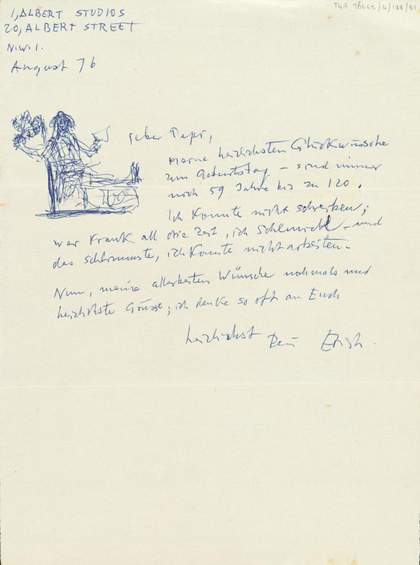 1, ALBERT STUDIOS
20, ALBERT STREET
N.W.1.
August 76
TGA
Lieber Papi,
meine herzlichsten Glückwünsche
zum Geburtstag – sind immer
noch 59 Jahre bis zu 120.
Ich konnte nicht schreiben;
war krank all die Zeit, ich Schlemiehl – und
das schlimmste, ich konnte nicht arbeiten –
Nun, meine allerbesten Wünsche nochmals und
herzlichste Grüsse; ich denke so oft an Euch
herzlichst Dein